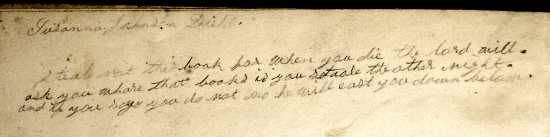 Susanna Johnson
Steal not this book for when you die the lord will
ask you whare that book is you stole the other night.
and if you say you do not no he will cast you down below.